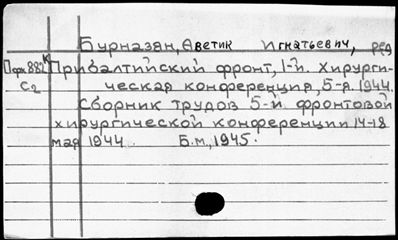 Бурназян, Аветик Игнатьевич, ред
Прибалтийский фронт, 1-й. Хирурги-
ческая конференция, 5-я. 1944.
С2
Сборник трудов 5-й фронтовой
хирургической конференции 14-18
мая 1944. Б.м., 1945.